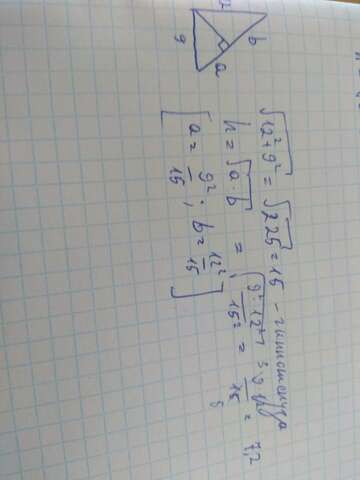 12
9 b
a
√12²+9² = √225 = 15 - гипотенуза
h = √a·b = √9²·12²/15² = 15 = 7,2
[a = 9²/15 ; b = 12²/15]